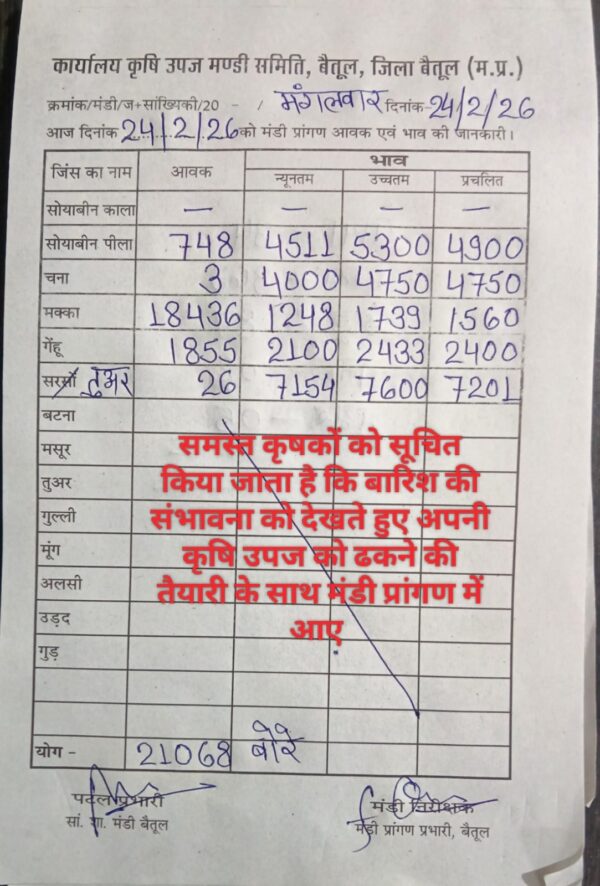 कार्यालय कृषि उपज मण्डी समिति, बैतूल, जिला बैतूल (म.प्र.)
क्रमांक/मंडी/ज+सांख्यिकी/20 - / मंगलवार दिनांक-24/2/26
आज दिनांक 24/2/26 को मंडी प्रांगण आवक एवं भाव की जानकारी।
जिंस का नाम आवक भाव
न्यूनतम उच्चतम प्रचलित
सोयाबीन काला — — — —
सोयाबीन पीला 748 4511 5300 4900
चना 3 4000 4750 4750
मक्का 18436 1248 1739 1560
गेंहू 1855 2100 2433 2400
सरसों तुअर 26 7154 7600 7201
बटना
मसूर
तुअर
गुल्ली
मूंग
अलसी
उड़द
गुड़
समस्त कृषकों को सूचित
किया जाता है कि बारिश की
संभावना को देखते हुए अपनी
कृषि उपज को ढकने की
तैयारी के साथ मंडी प्रांगण में
आए
योग - 21068 बोरे
पटल प्रभारी मंडी निरीक्षक
सां. शा. मंडी बैतूल मंडी प्रांगण प्रभारी, बैतूल